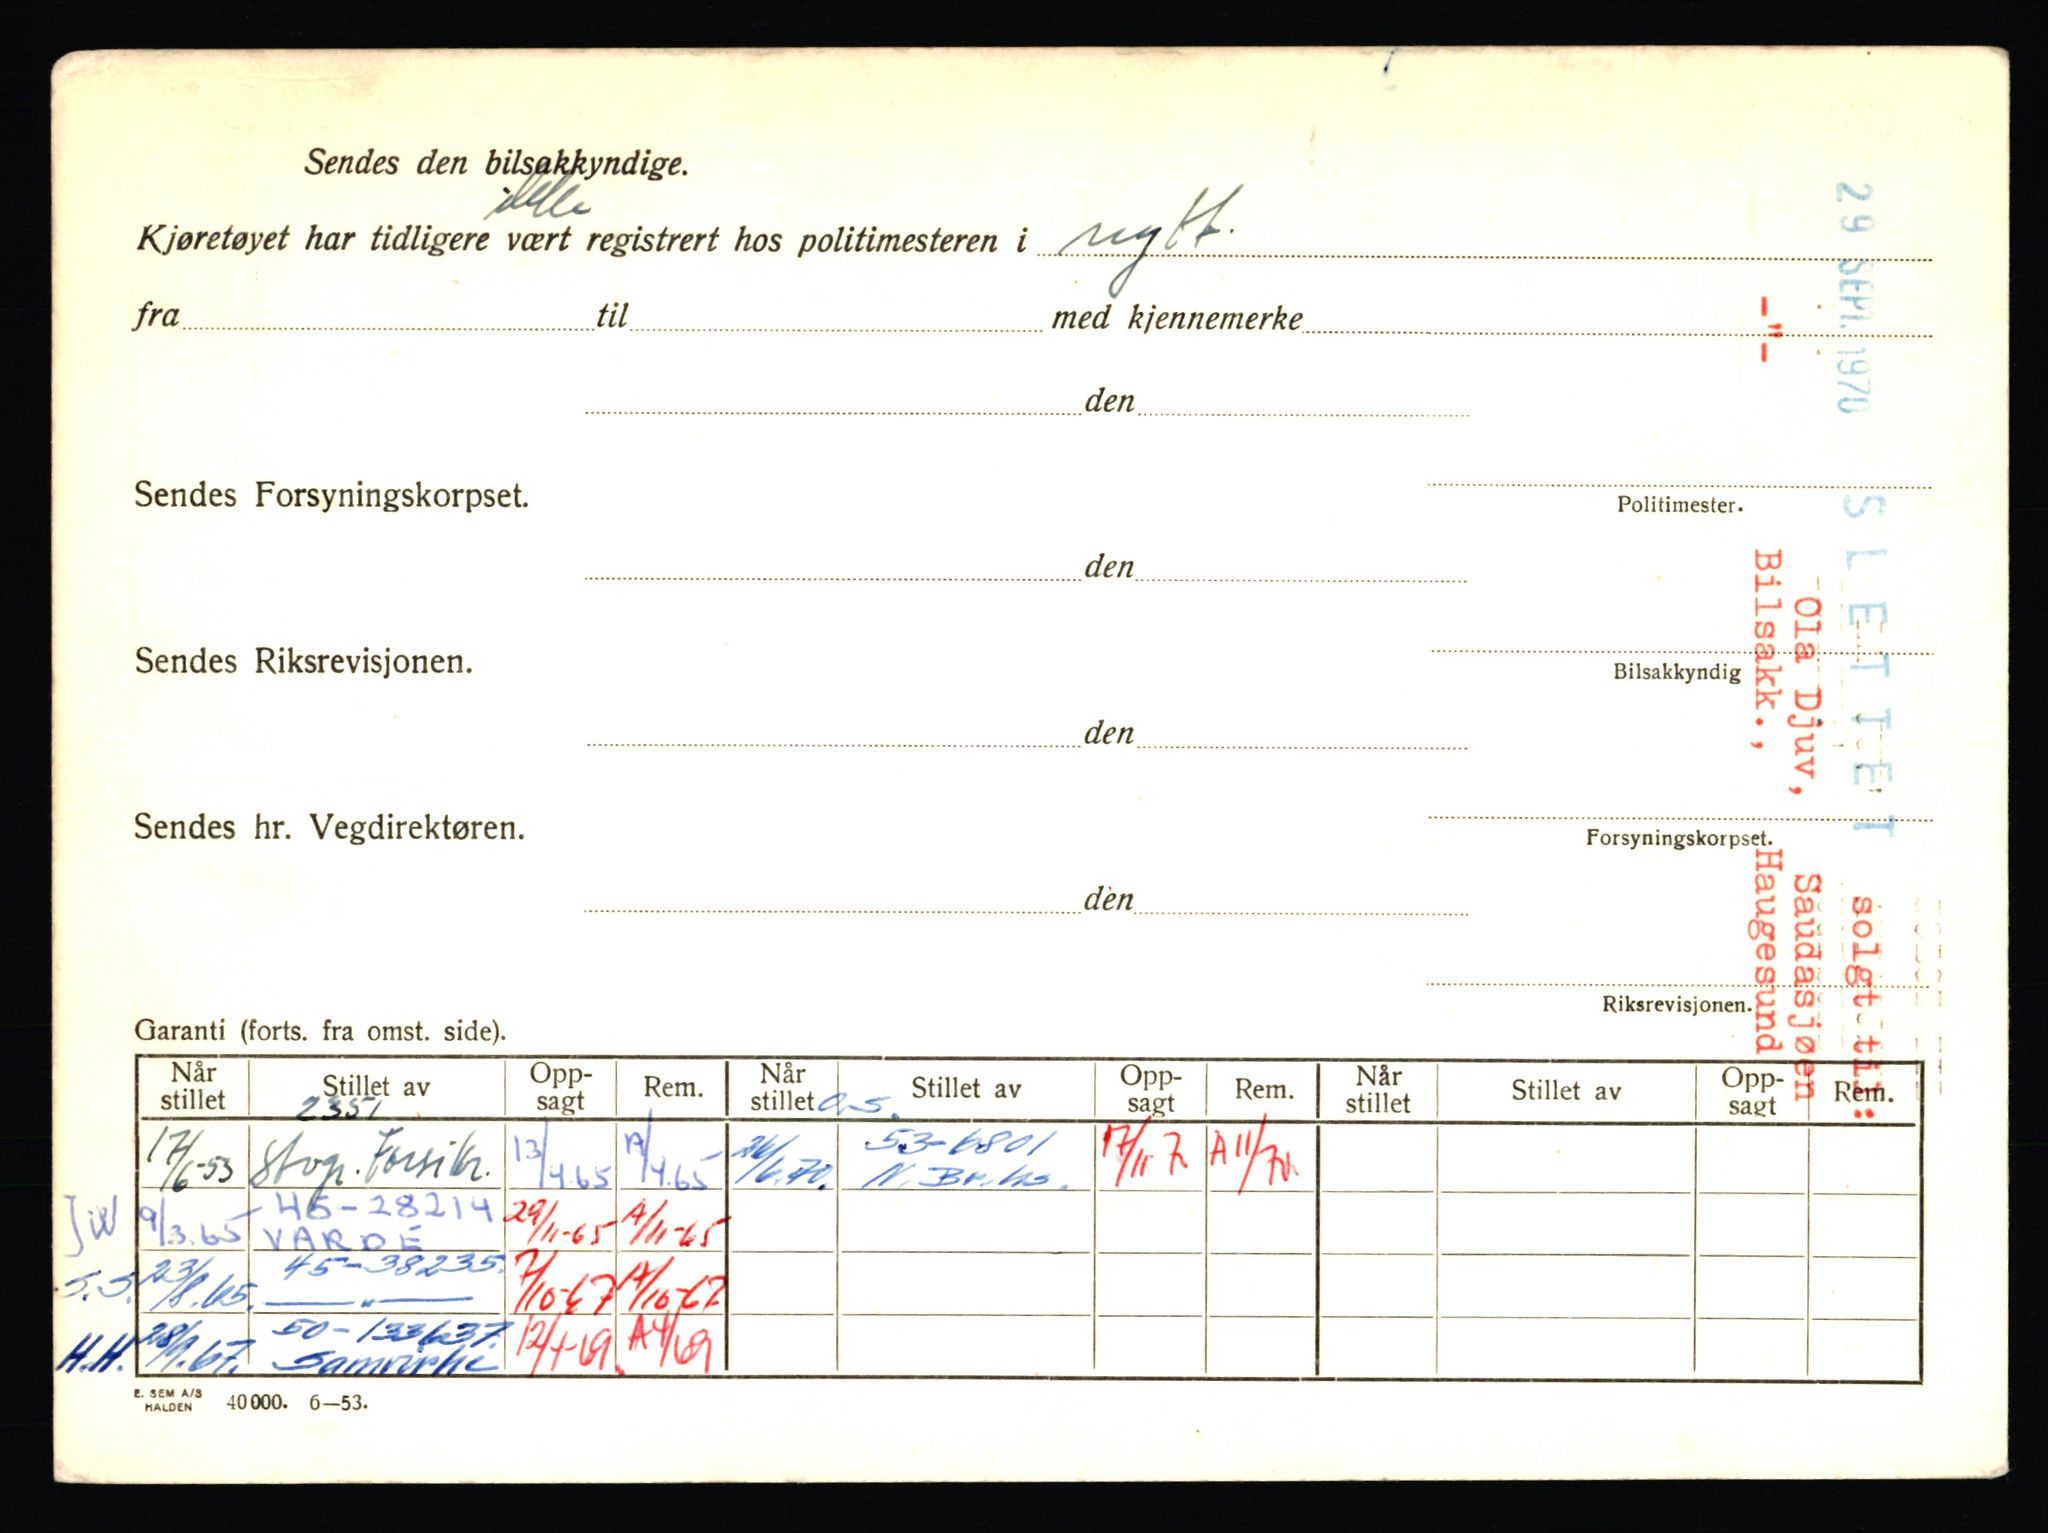 Sendes den bilsakkyndige.
ikke
Kjøretøyet har tidligere vært registrert hos politimesteren i nytt.
fra til med kjennemerke
den
Sendes Forsyningskorpset.
Politimester.
den
Sendes Riksrevisjonen.
Bilsakkyndig
den
Sendes hr. Vegdirektøren.
Forsyningskorpset.
den
Riksrevisjonen.
29 SEPT. 1970 SLETTET solgt til:
Ola Djuv, Saudasjøen
-"- Bilsakk., Haugesund
Garanti (forts. fra omst. side).
Når stillet Stillet av Opp-sagt Rem. Når stillet Stillet av Opp-sagt Rem. Når stillet Stillet av Opp-sagt Rem.
2351
17/6-53 Stvgr. Forsikr. 13/4.65 A/4.65 26/6.70. 53-6801 N. Br.ks. 17/11 7 A 11/70.
JW 9/3.65 45-28214 VARDE 29/11-65 A/11-65
S.S. 23/8.65. 45-38235. —"— 7/10-67 A/10-67
H.H. 28/9.67. 50-133637. Samvirke 12/4-69 A 4/69
E. SEM A/S
HALDEN 40000. 6—53.